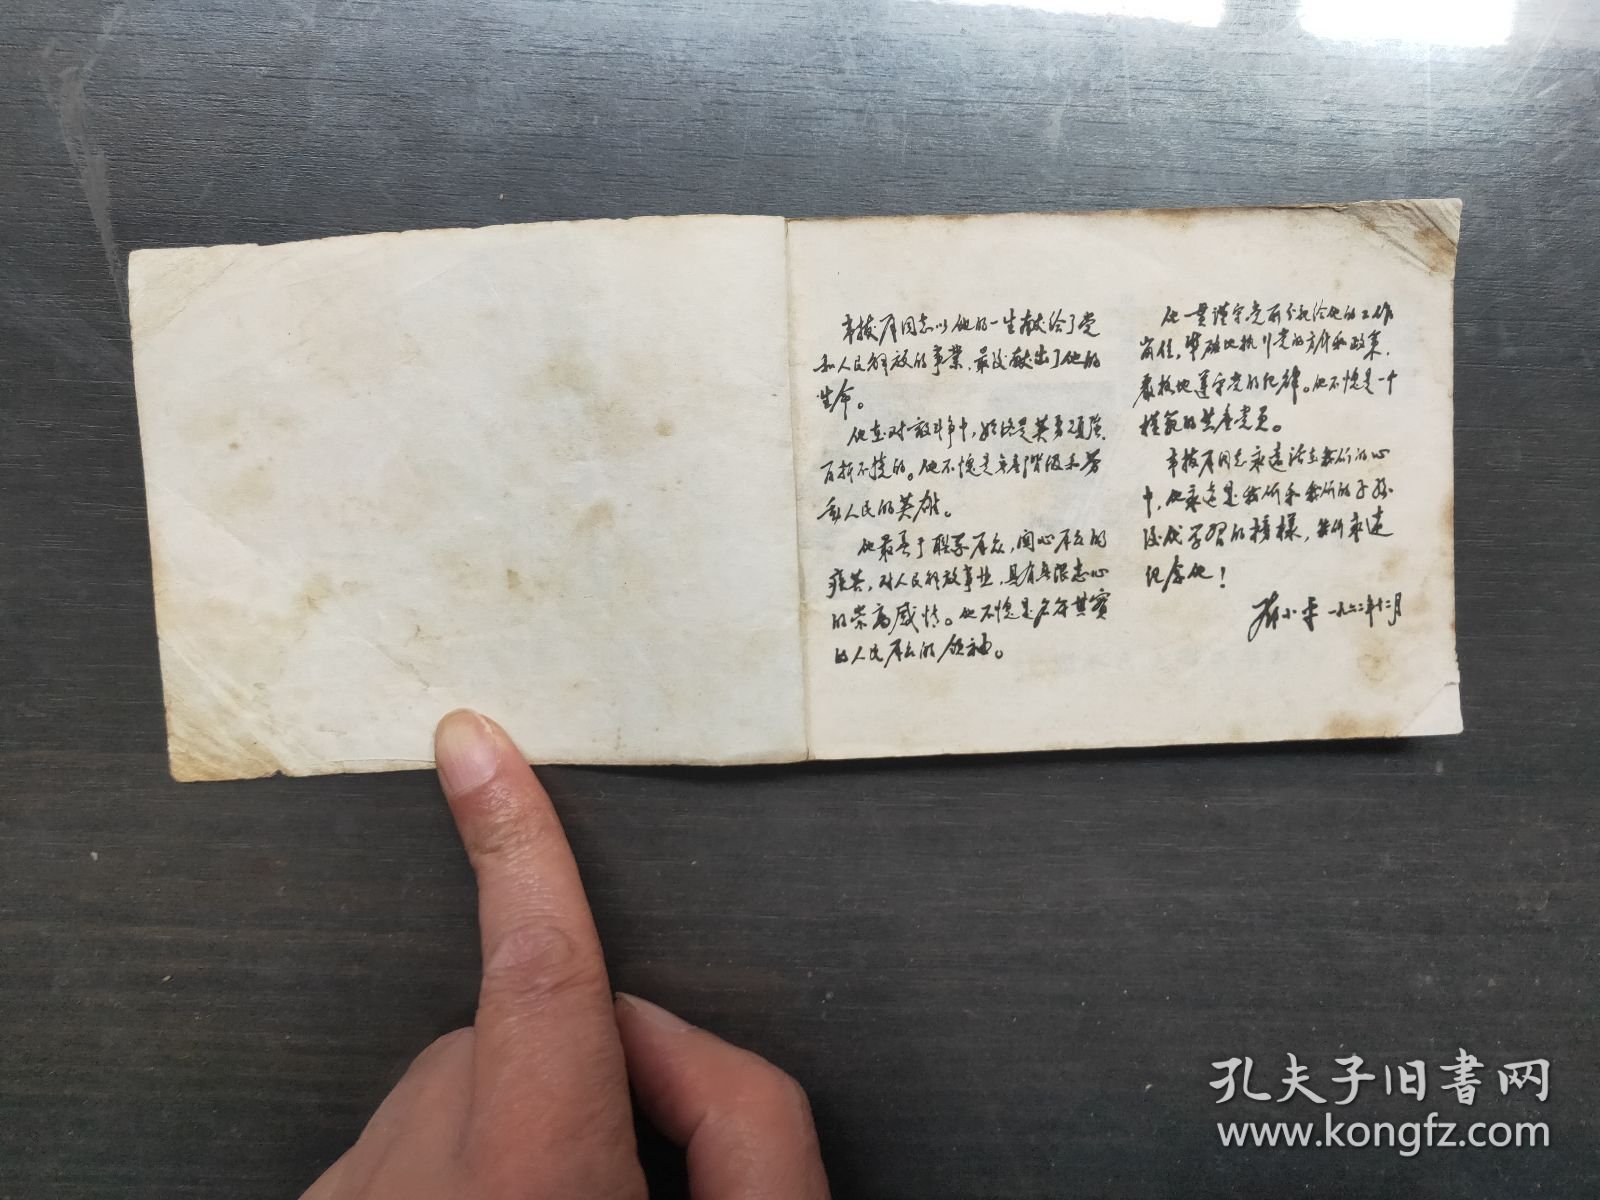 韦拔群同志以他的一生献给了党
和人民解放的事业，最后献出了他的
生命。
他在对敌斗争中，始终是英勇顽强，
百折不挠的。他不愧是无产阶级和劳
动人民的英雄。
他最善于联系群众，关心群众的
疾苦，对人民解放事业，具有无限忠心
的崇高感情。他不愧是名符其实
的人民群众的领袖。
他一贯谨守党所分配给他的工作
岗位，准确地执行党的方针和政策，
严格地遵守党的纪律。他不愧是一个
模范的共产党员。
韦拔群同志永远活在我们的心
中，他永远是我们和我们的子孙
后代学习的榜样，我们永远
纪念他！
邓小平 一九六二年十二月
孔夫子旧书网
www.kongfz.com